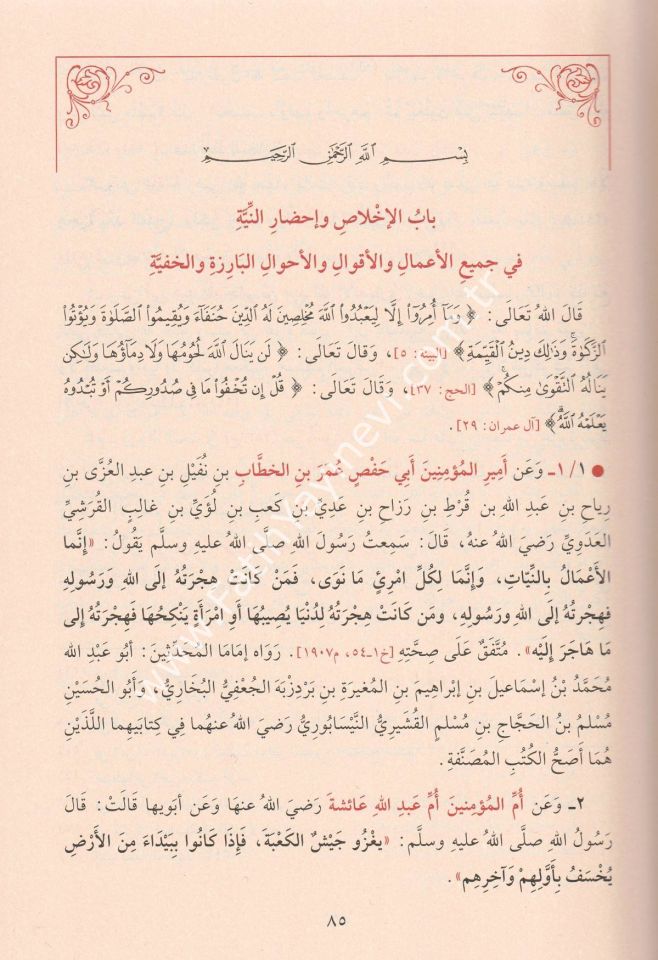 بِسْمِ اللَّهِ الرَّحْمَٰنِ الرَّحِيمِ
بابُ الإخْلاصِ وإحضارِ النِّيَّةِ
في جميعِ الأعمالِ والأقوالِ والأحوالِ البَارِزةِ والخفيَّةِ
قَالَ اللهُ تَعَالَى: ﴿ وَمَآ أُمِرُوٓا۟ إِلَّا لِيَعْبُدُوا۟ ٱللَّهَ مُخْلِصِينَ لَهُ ٱلدِّينَ حُنَفَآءَ وَيُقِيمُوا۟ ٱلصَّلَوٰةَ وَيُؤْتُوا۟
ٱلزَّكَوٰةَ ۚ وَذَٰلِكَ دِينُ ٱلْقَيِّمَةِ﴾ [البينه: ٥]، وَقَالَ تَعَالَى: ﴿ لَن يَنَالَ ٱللَّهَ لُحُومُهَا وَلَا دِمَآؤُهَا وَلَٰكِن
يَنَالُهُ ٱلتَّقْوَىٰ مِنكُمْ ۚ﴾ [الحج: ٣٧]، وَقَالَ تَعَالَى: ﴿ قُلْ إِن تُخْفُوا۟ مَا فِى صُدُورِكُمْ أَوْ تُبْدُوهُ
يَعْلَمْهُ ٱللَّهُ ۗ﴾ [آل عمران: ٢٩].
● ١/ ١ـ وَعَن أَمِيرِ المُؤْمِنِينَ أَبي حَفْصٍ عُمَرَ بنِ الخطَّابِ بنِ نُفَيْلِ بنِ عبدِ العُزَّى بنِ
رِياحِ بنِ عَبدِ اللهِ بن قُرْطِ بنِ رَزَاحِ بنِ عَدِيِّ بنِ كَعبِ بنِ لُؤَيِّ بنِ غالِبٍ القُرَشِيِّ
العَدَوِيِّ رَضيَ اللهُ عنهُ، قَالَ: سَمِعتُ رَسُولَ اللهِ صلَّى اللهُ عليهِ وسلَّم يَقُولُ: «إِنَّما
الأَعْمَالُ بِالنِّيَّاتِ، وَإِنَّمَا لِكُلِّ امْرِئٍ مَا نَوَى، فَمَنْ كَانَتْ هِجْرَتُهُ إلَى اللهِ وَرَسُولِهِ
فهِجْرتُهُ إلَى اللهِ ورَسُولِهِ، ومَن كَانَتْ هِجْرَتُهُ لِدُنْيَا يُصِيبُهَا أَوِ امْرَأَةٍ يَنْكِحُهَا فَهِجْرَتُهُ إلى
مَا هَاجَرَ إِلَيْهِ». مُتَّفَقٌ عَلَى صِحَّتِهِ [خ١ـ٥٤، م١٩٠٧]. رَوَاه إمَامَا المُحَدِّثِينَ: أبُو عَبْدِ اللهِ
مُحَمَّدُ بْنُ إسْمَاعِيلَ بنِ إبْراهِيمَ بنِ المُغِيرَةِ بنِ بَرْدِزْبَةَ الجُعْفِيُّ البُخَارِيُّ، وَأَبُو الحُسَيْنِ
مُسْلِمُ بنُ الحَجَّاجِ بنِ مُسْلمٍ القُشَيْرِيُّ النَّيْسَابُورِيُّ رَضيَ اللهُ عنهُمَا فِي كِتابَيهِما اللَّذَيْنِ
هُمَا أَصَحُّ الكُتُبِ المُصَنَّفةِ.
٢ـ وَعَن أُمِّ المُؤْمِنِينَ أُمِّ عَبدِ اللهِ عَائشةَ رَضيَ اللهُ عنهَا وَعَن أَبوَيها قَالَتْ: قَالَ
رَسُولُ اللهِ صلَّى اللهُ عليهِ وسلَّم: «يغْزُو جَيْشٌ الكَعْبَةَ، فَإِذَا كَانُوا بِبَيْدَاءَ مِنَ الأَرْضِ
يُخْسَفُ بِأَوَّلِهِمْ وَآخِرِهِم».
٨٥
www.FatihYayinevi.com.tr